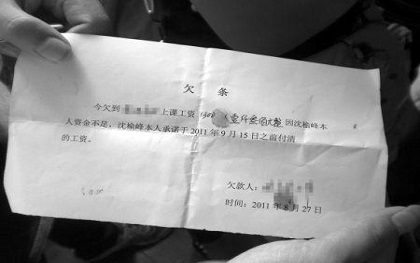 欠 条
今欠到 上课工资 1500 因沈榆峰本
人资金不足，沈榆峰本人承诺于2011年9月15日之前付清
的工资。
欠款人：
时间：2011年8月27日